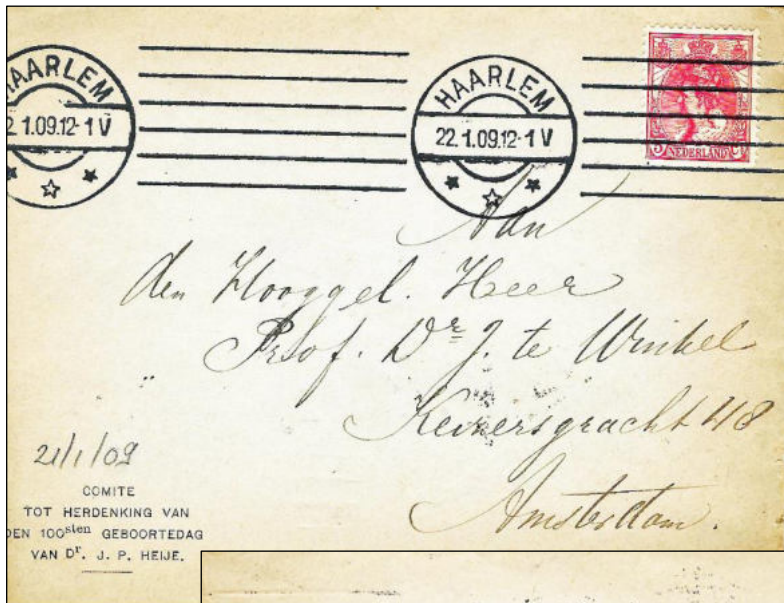 HAARLEM
2. 1.09.12-1 V
HAARLEM
22. 1.09.12-1 V
5 NEDERLAND Ct
Aan
den Hooggel. Heer
Prof. Dr J. te Winkel
Keizersgracht 418
Amsterdam.
21/1/09
COMITE
TOT HERDENKING VAN
DEN 100sten GEBOORTEDAG
VAN Dr. J. P. HEIJE.